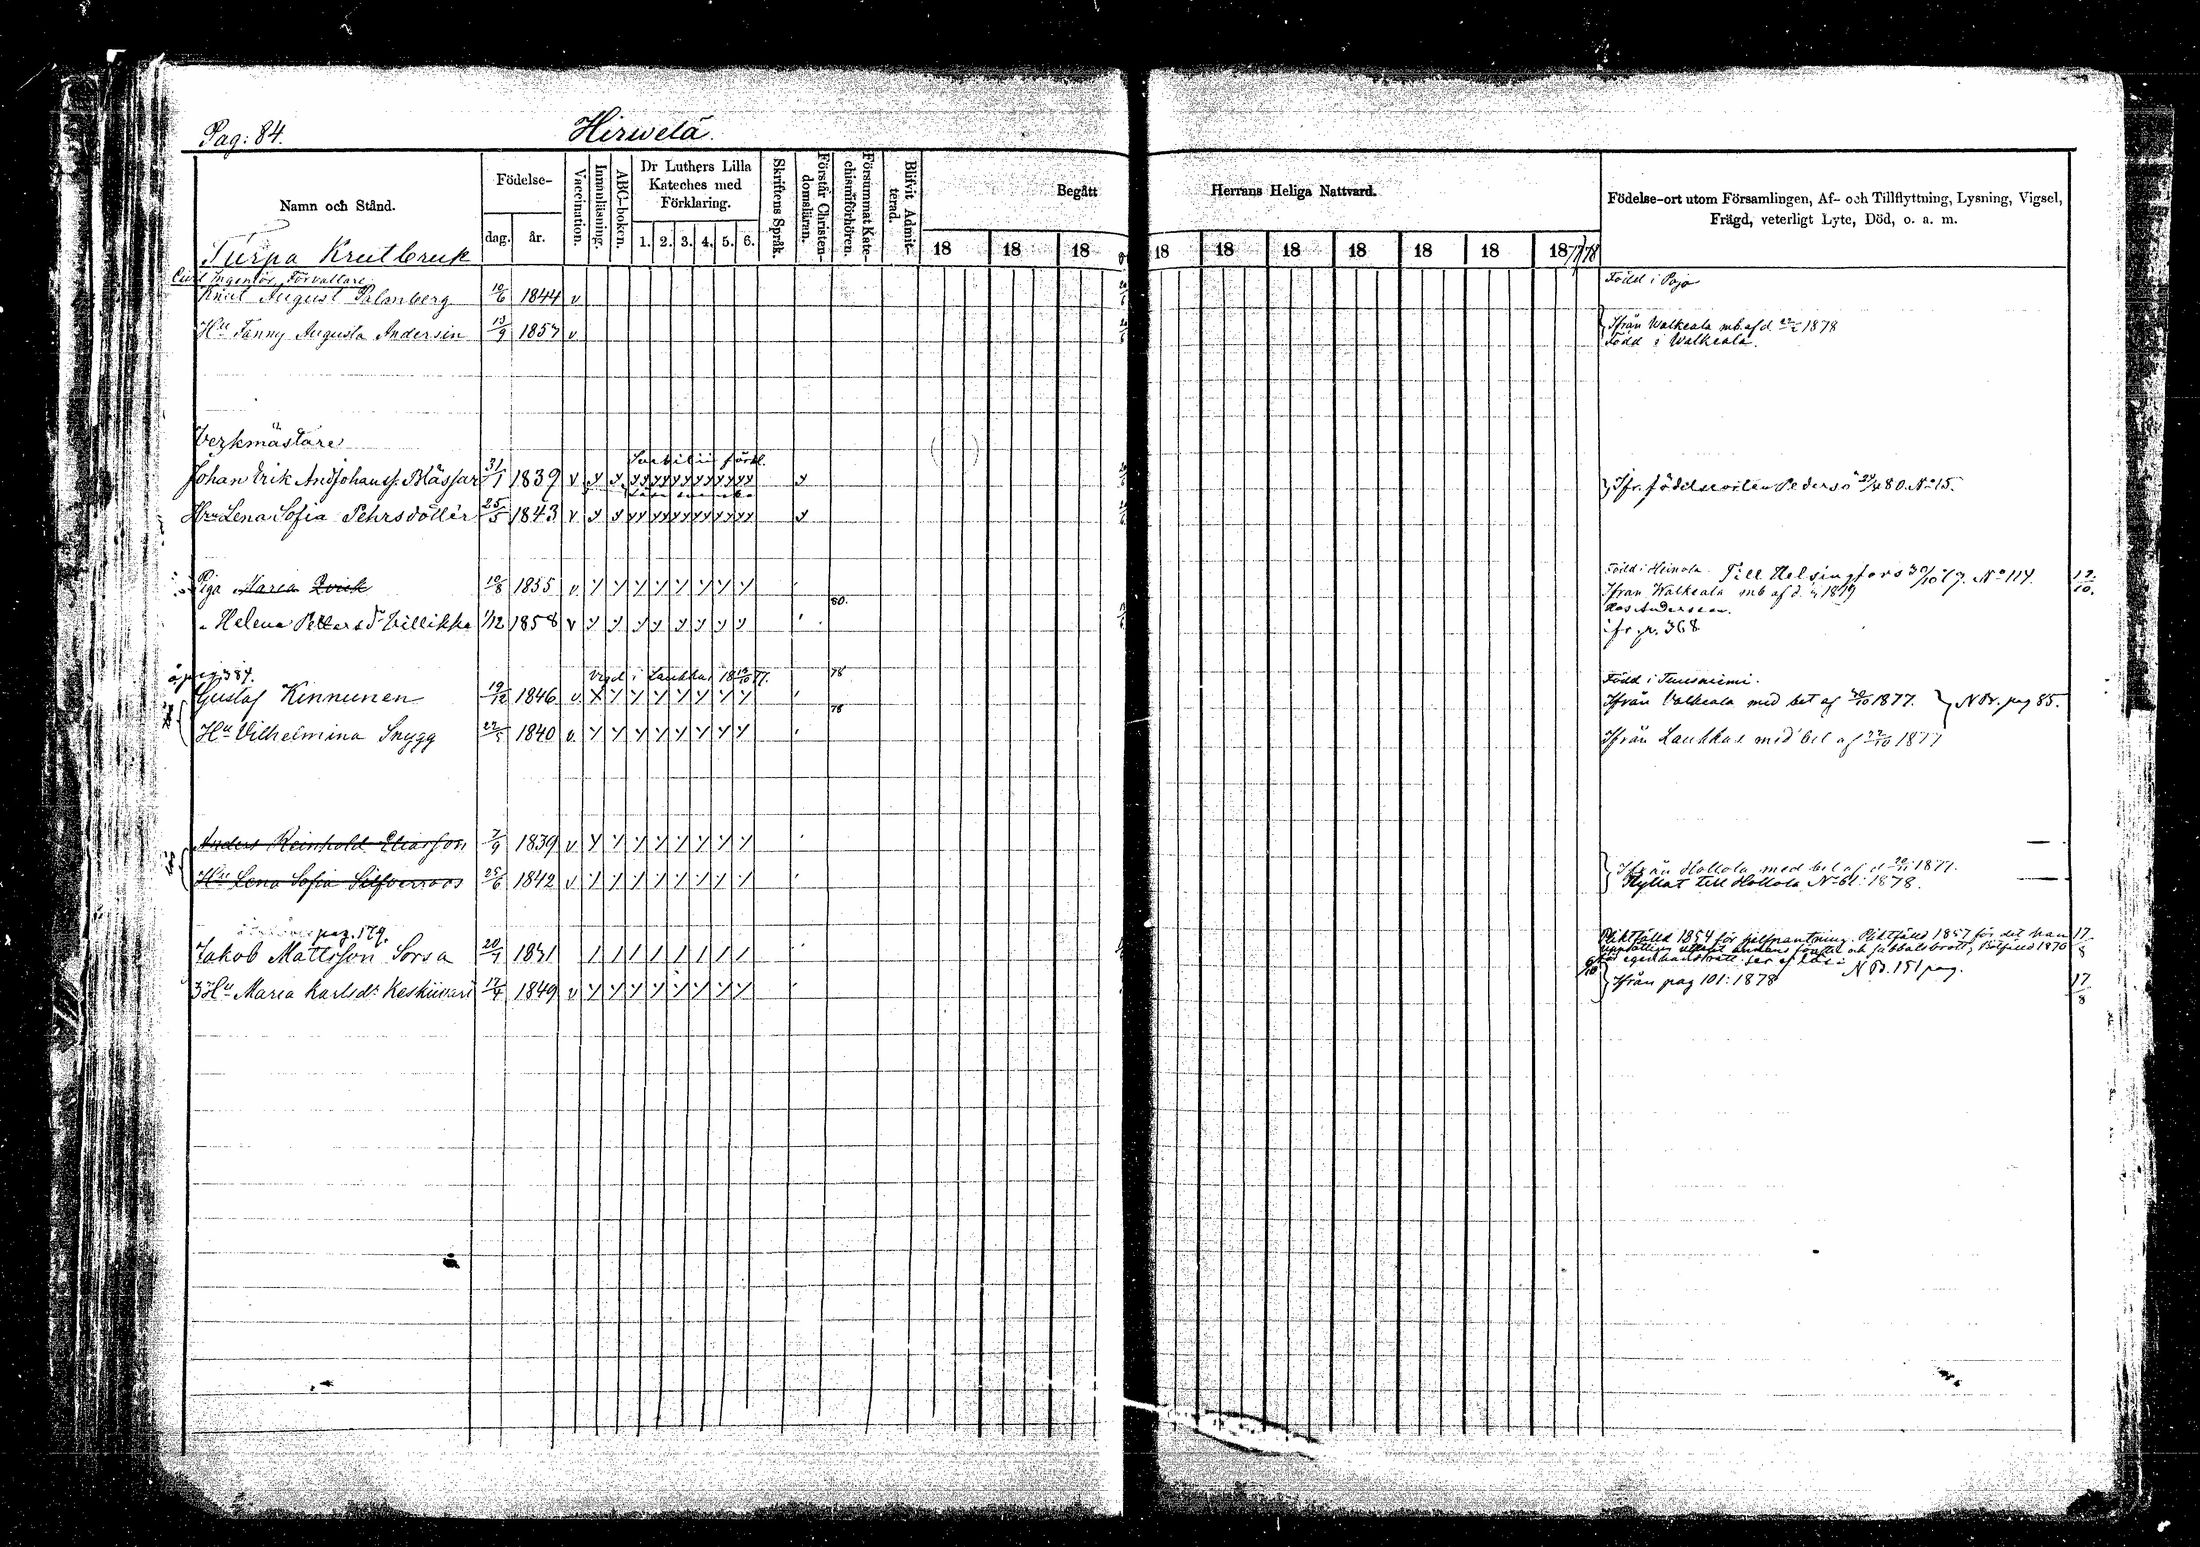 Pag: 84.
Hirwelä.
Namn och Stånd.
Födelse-
dag.
år.
Vaccination.
Innanläsning.
ABC-boken.
Dr Luthers Lilla
Kateches med
Förklaring.
1. 2. 3. 4. 5. 6.
Skriftens Språk.
Förstår Christen-
domsläran.
Försummat Kate-
chismiförhören.
Blifvit Admit-
terad.
Begått Herrans Heliga Nattvard.
18 18 18 18 18 18 18 18 18 18 77/78
Födelse-ort utom Församlingen, Af- och Tillflyttning, Lysning, Vigsel,
Frägd, veterligt Lyte, Död, o. a. m.
Turpa Krutbruk
Civil Ingeniör, Förvaltare
Knut August Palmberg 10/6 1844 v Född i Pojo
Hu Fanny Augusta Andersin 13/9 1857 v Ifrån Walkeala mb. af d. 1878
Född i Walkeala.
Verkmästare
förkl.
Johan Erik And Johanss: Blässar 31/1 1839 v Ifr. födelseorten Pedersö 80. No 15.
Hru Lena Sofia Pehrsdotter 25/5 1843 v
Född i Heinola. Till Helsingfors 30/10 79. No 114. 12/10.
Piga Maria Qvick 10/8 1855 v Ifrån Walkeala mb af d. 1879
80.
Hos Andersson.
" Helena Petters dr Villikka 1/12 1858 v ifr. p. 368
å pag. 384. Vigd i Laukkas 18 77. 78 Född i Tuusniemi.
Gustaf Kinnunen 19/12 1846 v. Ifrån Valkeala med bet af 20/10 1877. N B. pag 85.
78
Hu Vilhelmina Snygg 1840 v. Ifrån Laukkas med bet af 22/10 1877
Anders Reinhold Eliasson 7/9 1839 v
Hu Lena Sofia Silfverroos 25/6 1842 v Ifrån Hollola med bet af d 1877.
Flyttat till Hollola No 61: 1878.
pag. 179.
Jakob Mattsson Sorsa 20/7 1831 Pliktfälld 1854 för sjelfpantning. Pliktfälld 1857 för det han 17/8
fönster och sabbatsbrott, Bötfälld 1870
för egenhandsrätt. N B. 151 pag.
3 Hu Maria Karlsdr. Keskiivari 17/4 1849 v Ifrån pag 101: 1878 17/8